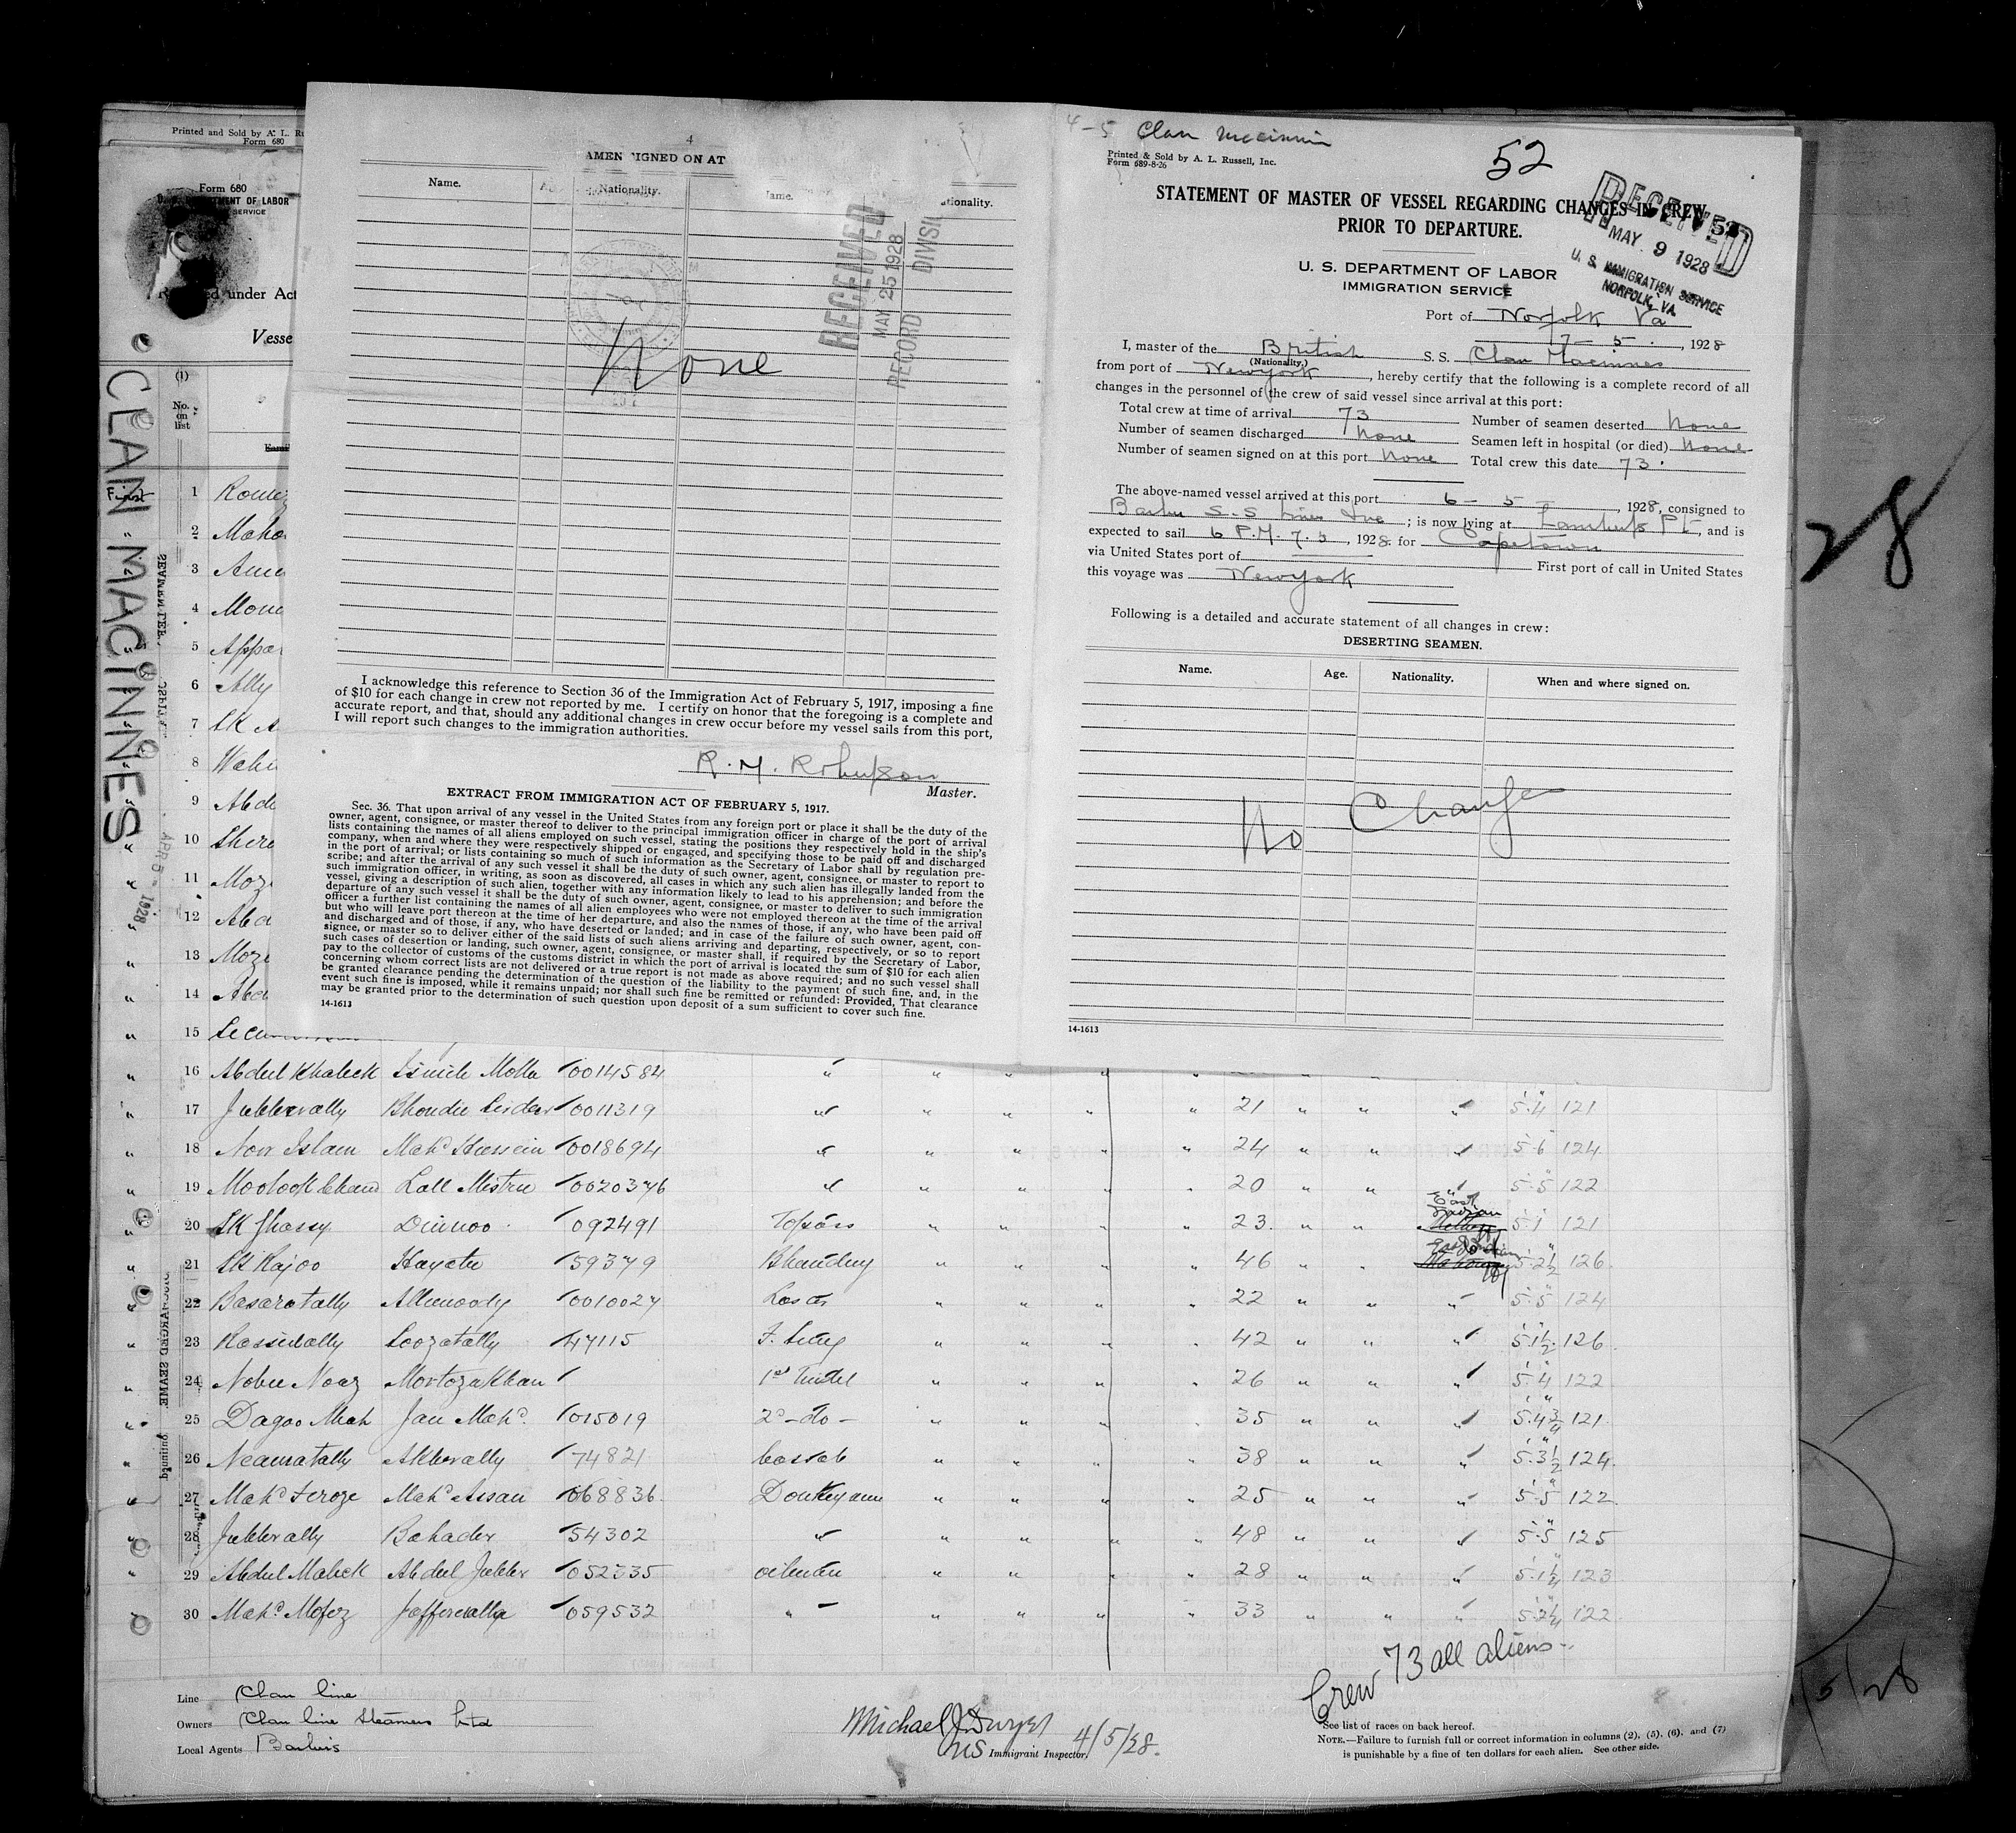 Printed and Sold by A. L.
Form 680
Form 680
DEPARTMENT OF LABOR
SERVICE
under Act
Vesse
(1)
No. on list
CLAN MACINNES
APR 5 - 1928
4
AMEN SIGNED ON AT
Name. Nationality. Name. Nationality.
RECEIVED
MAY 25 1928
RECORD DIVISI
None
I acknowledge this reference to Section 36 of the Immigration Act of February 5, 1917, imposing a fine
of $10 for each change in crew not reported by me. I certify on honor that the foregoing is a complete and
accurate report, and that, should any additional changes in crew occur before my vessel sails from this port,
I will report such changes to the immigration authorities.
R. M.
Master.
EXTRACT FROM IMMIGRATION ACT OF FEBRUARY 5, 1917.
Sec. 36. That upon arrival of any vessel in the United States from any foreign port or place it shall be the duty of the
owner, agent, consignee, or master thereof to deliver to the principal immigration officer in charge of the port of arrival
lists containing the names of all aliens employed on such vessel, stating the positions they respectively hold in the ship's
company, when and where they were respectively shipped or engaged, and specifying those to be paid off and discharged
in the port of arrival; or lists containing so much of such information as the Secretary of Labor shall by regulation pre-
scribe; and after the arrival of any such vessel it shall be the duty of such owner, agent, consignee, or master to report to
such immigration officer, in writing, as soon as discovered, all cases in which any such alien has illegally landed from the
vessel, giving a description of such alien, together with any information likely to lead to his apprehension; and before the
departure of any such vessel it shall be the duty of such owner, agent, consignee, or master to deliver to such immigration
officer a further list containing the names of all alien employees who were not employed thereon at the time of the arrival
but who will leave port thereon at the time of her departure, and also the names of those, if any, who have been paid off
and discharged and of those, if any, who have deserted or landed; and in case of the failure of such owner, agent, con-
signee, or master so to deliver either of the said lists of such aliens arriving and departing, respectively, or so to report
such cases of desertion or landing, such owner, agent, consignee, or master shall, if required by the Secretary of Labor,
pay to the collector of customs of the customs district in which the port of arrival is located the sum of $10 for each alien
concerning whom correct lists are not delivered or a true report is not made as above required; and no such vessel shall
be granted clearance pending the determination of the question of the liability to the payment of such fine, and, in the
event such fine is imposed, while it remains unpaid; nor shall such fine be remitted or refunded: Provided, That clearance
may be granted prior to the determination of such question upon deposit of a sum sufficient to cover such fine.
14-1613
4-5 Clan
52
Printed & Sold by A. L. Russell, Inc.
Form 689-8-26
STATEMENT OF MASTER OF VESSEL REGARDING CHANGES IN CREW
PRIOR TO DEPARTURE.
RECEIVED
MAY 9 1928
U. S. IMMIGRATION SERVICE
NORFOLK, VA.
U. S. DEPARTMENT OF LABOR
IMMIGRATION SERVICE
Port of Norfolk Va
7 - 5 , 1928
I, master of the British S. S. Clan Macinnes
(Nationality.)
from port of Newyork , hereby certify that the following is a complete record of all
changes in the personnel of the crew of said vessel since arrival at this port:
Total crew at time of arrival 73 Number of seamen deserted None
Number of seamen discharged None Seamen left in hospital (or died) None
Number of seamen signed on at this port None Total crew this date 73
The above-named vessel arrived at this port 6 - 5 , 1928, consigned to
Barber S.S Lines Inc ; is now lying at Lamberts Pt , and is
expected to sail 6 P.M. 7.5 , 1928 for Capetown
via United States port of First port of call in United States
this voyage was Newyork
Following is a detailed and accurate statement of all changes in crew:
DESERTING SEAMEN.
Name. Age. Nationality. When and where signed on.
No Change
14-1613
28
First 1
2
3
4
5
6 Ally
7 SK
8
9
10
11
12
13
14
15
16 Abdul Khaleck Ismile Molla 0014584 " " " " "
17 Jubberally Bhondu Sirdar 0011319 " " " " " 21 " " " 5.4 121
18 Noor Islam Mahd Hussein 0018694 " " " " " 24 " " " 5.6 124
19 Moolook Chand Lall Mistree 0020376 " " " " " 20 " " " 5.5 122
20 SK Dinnoo 092491 Topass " " " " 23 " " East Indian 5.1 121
21 SK Rajoo 59379 Bhandary " " " " 46 " " East Indian 5.2½ 126
22 Basaratally 0010027 Lascar " " " " 22 " " " 5.5 124
23 47115 " " " " 42 " " " 5.1½ 126
24 Mortoza Khan 1st Tindel " " " " 26 " " " 5.4 122
25 Dagoo Mah Jan Mahd 015019 2d - do - " " " " 35 " " " 5.4¾ 121
26 Neamatally Akberally 74821 Cassab " " " " 38 " " " 5.3½ 124
27 Mahd Feroze Mahd Assan 068836 Donkeyman " " " " 25 " " " 5.5 122
28 Jubberally Bahader 54302 " " " " " 48 " " " 5.5 125
29 Abdul Maleck Abdul Jubber 052335 oilman " " " " 28 " " " 5.1¼ 123
30 Mahd Mofez 059532 " " " " " 33 " " " 5.2¼ 122
Crew 73 all aliens
Line Clan line
Owners Clan line Steamers Ltd
Local Agents Barbers
Michael J. Dwyer
US Immigrant Inspector. 4/5/28.
See list of races on back hereof.
NOTE.—Failure to furnish full or correct information in columns (2), (5), (6), and (7)
is punishable by a fine of ten dollars for each alien. See other side.